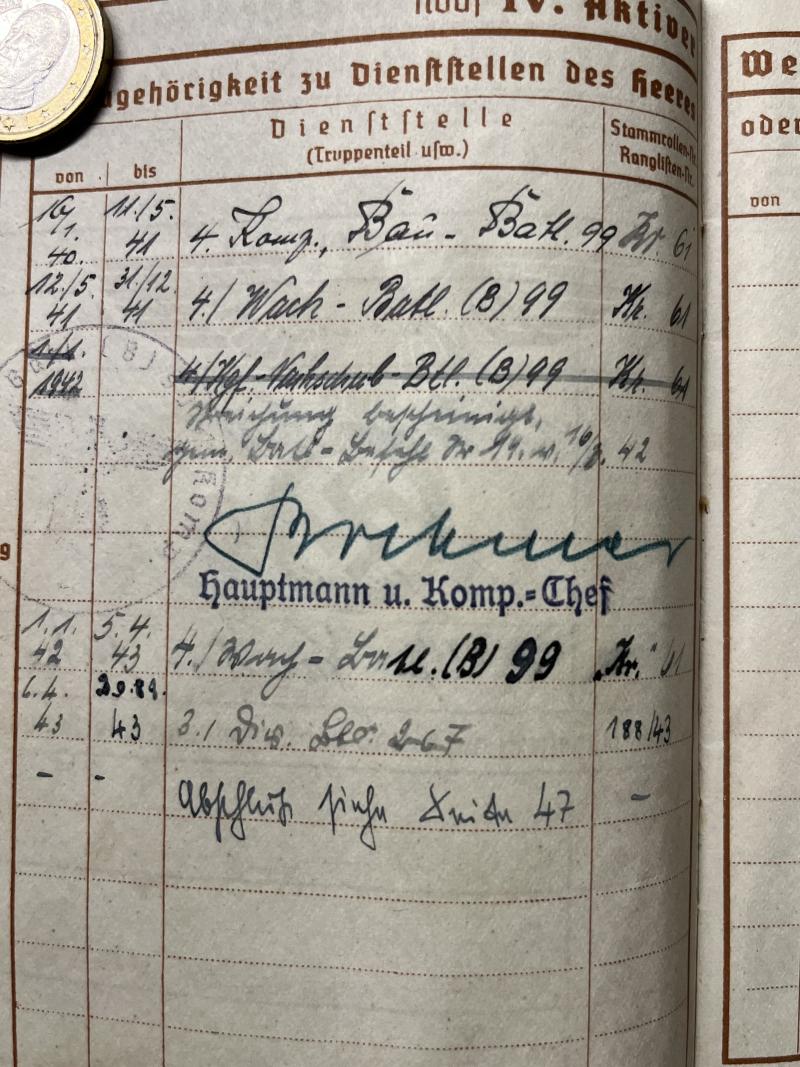 Noch IV. Aktiver
ugehörigkeit zu Dienststellen des Heeres
von bis
Dienststelle
(Truppenteil usw.)
Stammrollen-Nr.
Ranglisten-Nr.
16/1. 40. 11./5. 41 4. Komp., Bau-Batl. 99 Kr. 61
12./5. 41 31/12. 41 4./ Wach-Batl. (B) 99 Kr. 61
1./1. 1942 4/Kgf.-Nachschub-Btl. (B) 99 Kr. 61
Streichung bescheinigt,
gem. Batl-Befehl Nr 19. v. 42
Hauptmann u. Komp.=Chef
1.1. 42 5.4. 43 4./ Wach-Batl. (B) 99 „Kr.“ 61
6.4. 43 43 3./ Div. 267 188/43
- - Abschluß siehe Seite 47 -
We
oder
von
g